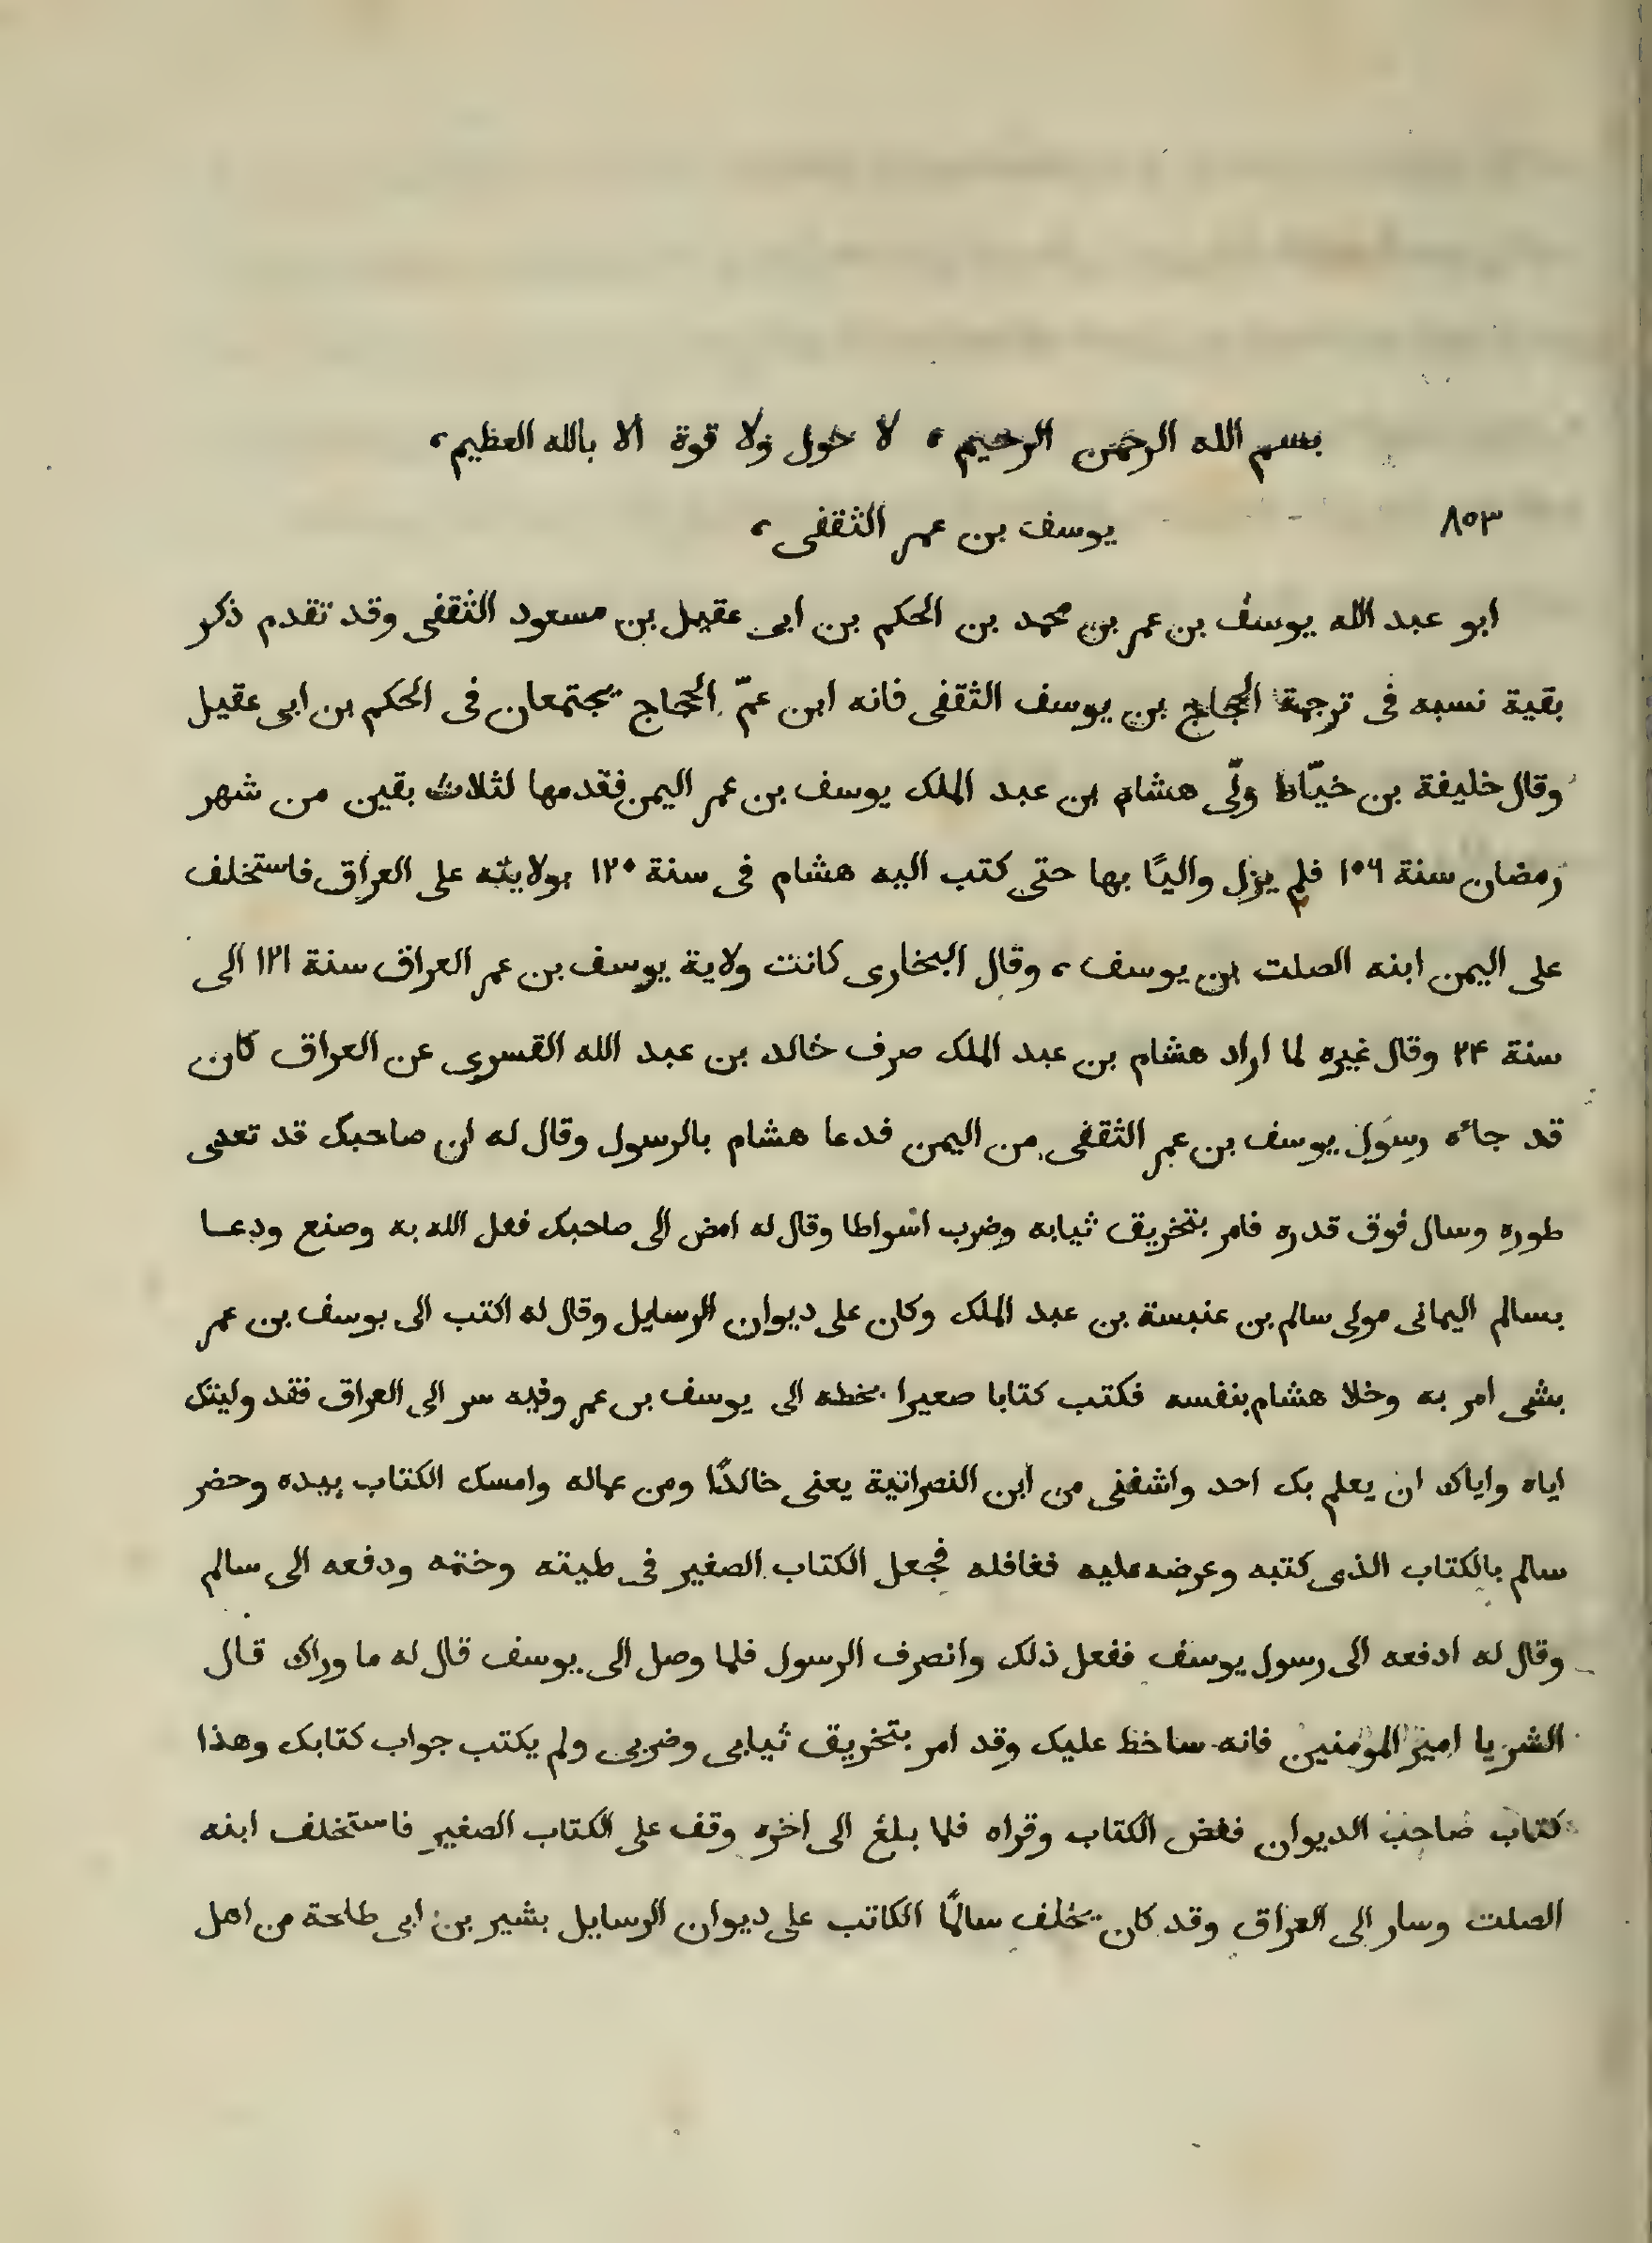 بسم الله الرحمن الرحيم ، لا حول ولا قوة الا بالله العظيم ،
٨٥٣ يوسف بن عمر الثقفى ،
ابو عبد الله يوسف بن عمر بن محمد بن الحكم بن ابى عقيل بن مسعود الثقفى وقد تقدم ذكر
بقية نسبه فى ترجمة الحجاج بن يوسف الثقفى فانه ابن عمّ الحجاج يجتمعان فى الحكم بن ابى عقيل
وقال خليفة بن خيّاط ولّى هشام بن عبد الملك يوسف بن عمر اليمن فقدمها لثلاث بقين من شهر
رمضان سنة ١٠٦ فلم يزل واليًا بها حتى كتب اليه هشام فى سنة ١٢٠ بولايته على العراق فاستخلف
على اليمن ابنه الصلت بن يوسف ، وقال البخارى كانت ولاية يوسف بن عمر العراق سنة ١٢١ الى
سنة ٢۴ وقال غيره لما اراد هشام بن عبد الملك صرف خالد بن عبد الله القسرى عن العراق كان
قد جائه رسول يوسف بن عمر الثقفى من اليمن فدعا هشام بالرسول وقال له ان صاحبك قد تعدى
طوره وسال فوق قدره فامر بتخريق ثيابه وضرب اسواطا وقال له امض الى صاحبك فعل الله به وصنع ودعا
بسالم اليمانى مولى سالم بن عنبسة بن عبد الملك وكان على ديوان الرسايل وقال له اكتب الى يوسف بن عمر
بشى امر به وخلا هشام بنفسه فكتب كتابا صعيرا بخطه الى يوسف بن عمر وفيه سر الى العراق فقد وليتك
اياه واياك ان يعلم بك احد واشفنى من ابن النصرانية يعنى خالدًا ومن عماله وامسك الكتاب بيده وحضر
سالم بالكتاب الذى كتبه وعرضه عليه فغافله فجعل الكتاب الصغير فى طيته وختمه ودفعه الى سالم
وقال له ادفعه الى رسول يوسف ففعل ذلك وانصرف الرسول فلما وصل الى يوسف قال له ما وراك قال
الشر يا امير المومنين فانه ساخط عليك وقد امر بتخريق ثيابى وضربى ولم يكتب جواب كتابك وهذا
كتاب صاحب الديوان ففض الكتاب وقراه فلما بلغ الى اخره وقف على الكتاب الصغير فاستخلف ابنه
الصلت وسار الى العراق وقد كان يخلف سالمًا الكاتب على ديوان الرسايل بشير بن ابى طلحة من اهل